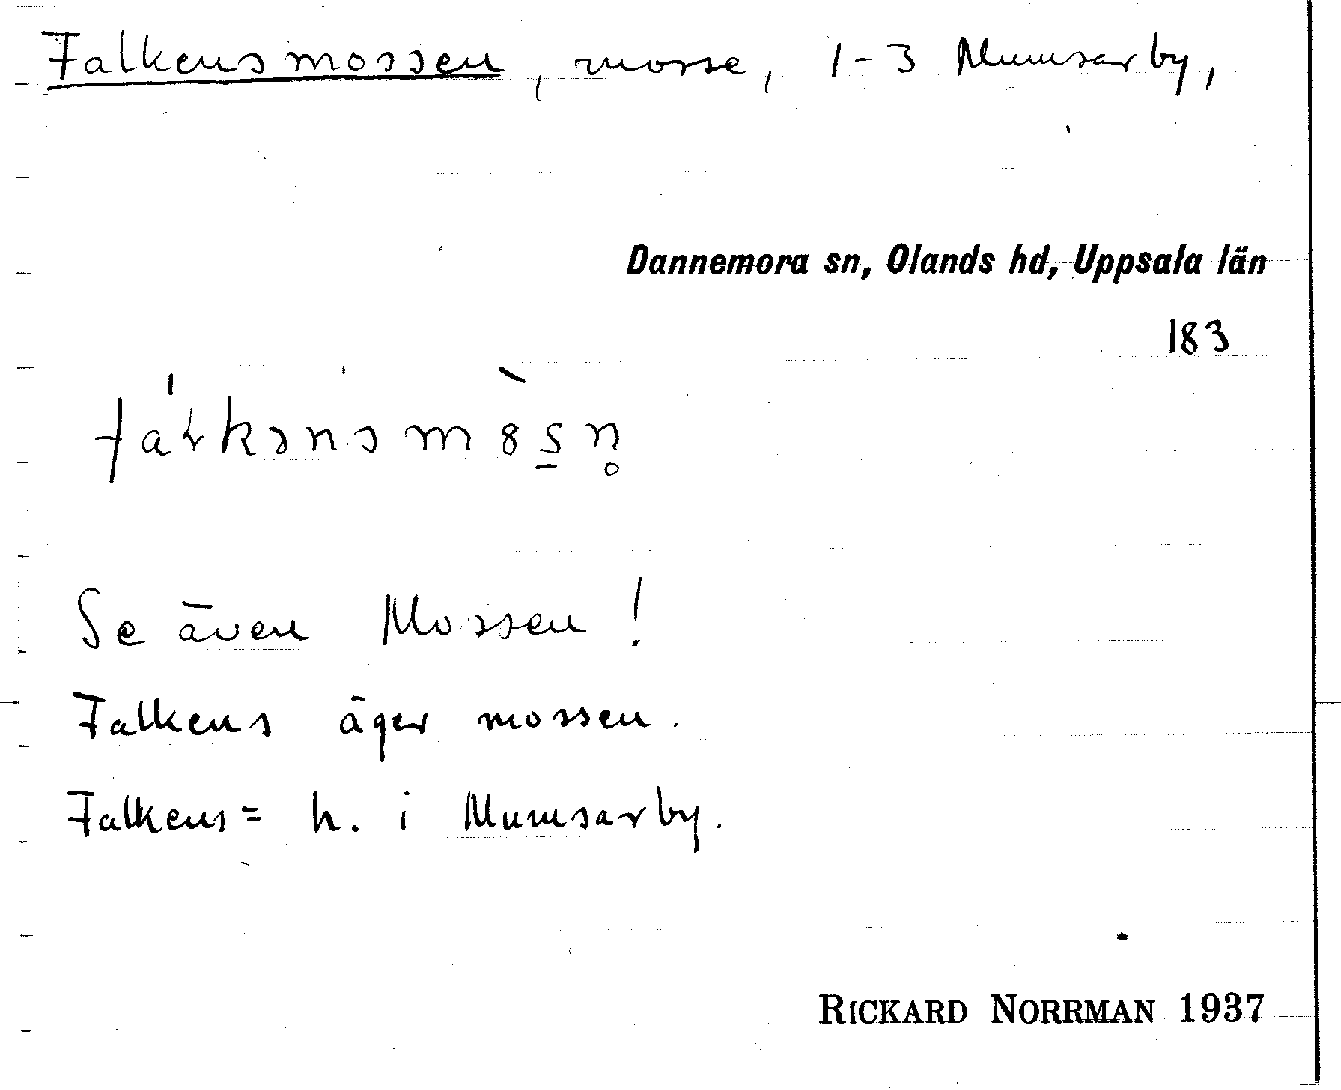 Falkensmossen, mosse, 1-3 Mumsarby,
Dannemora sn, Olands hd, Uppsala län
183
Se även Mossen!
Falkens äger mossen.
Falkens = h. i Mumsarby.
RICKARD NORRMAN 1937